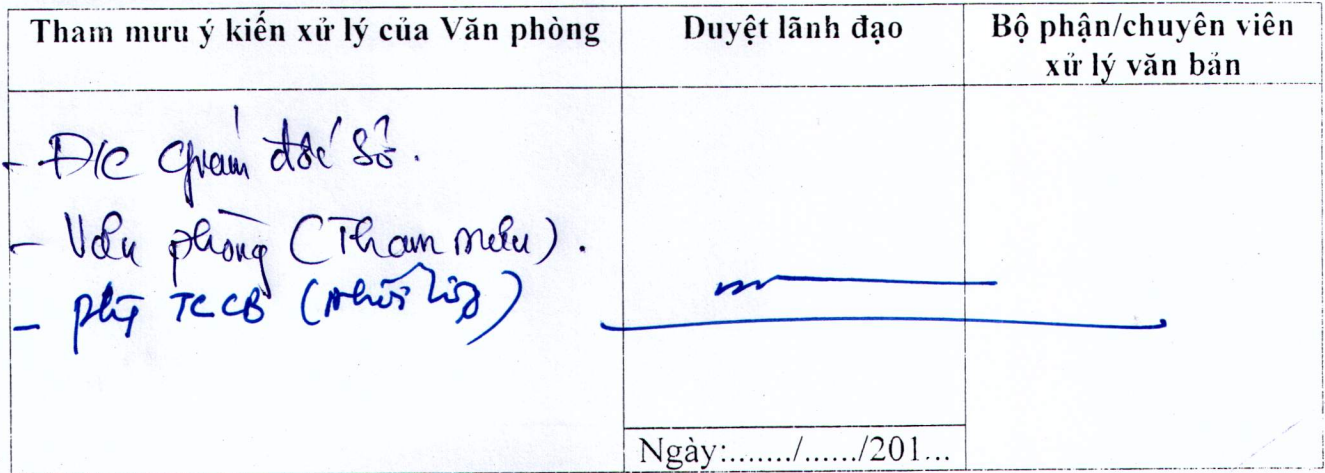 Tham mưu ý kiến xử lý của Văn phòng
Duyệt lãnh đạo
Bộ phận/chuyên viên
xử lý văn bản
- Đ/C Giám đốc Sở.
- Văn phòng (Tham mưu).
- TCCB (phối hợp)
Ngày:......./....../201...